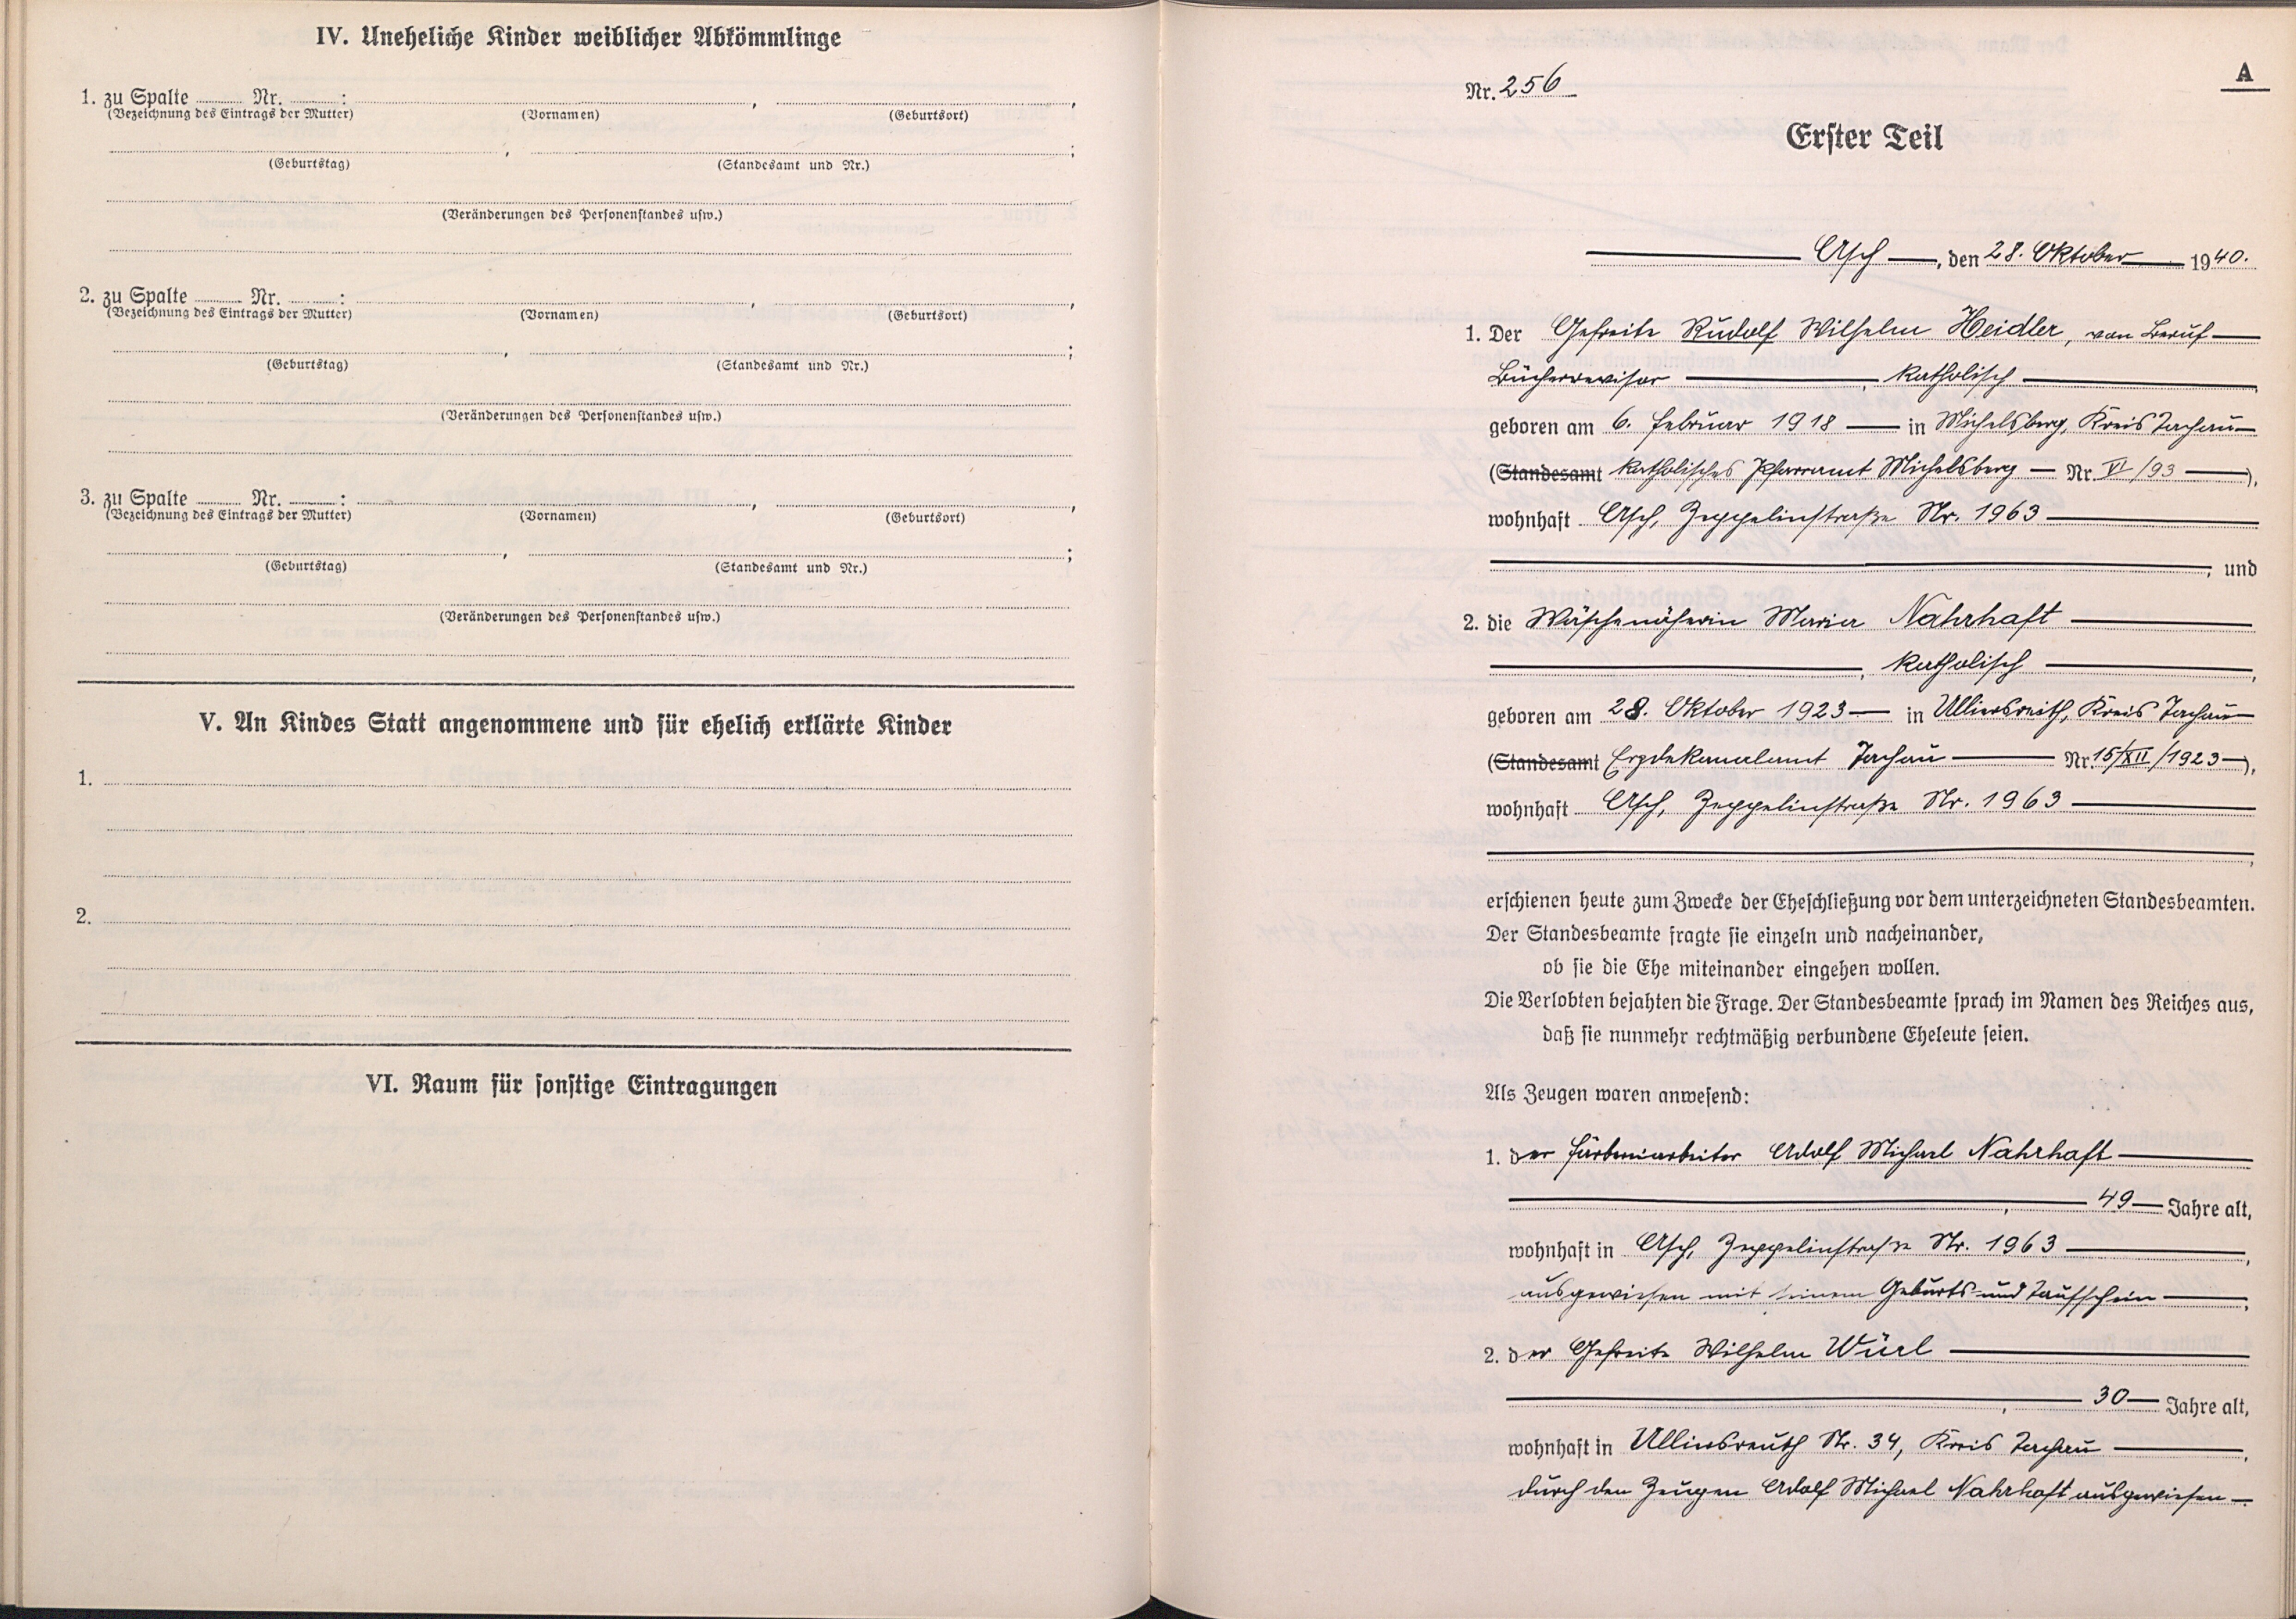 IV. Uneheliche Kinder weiblicher Abkömmlinge
1. zu Spalte Nr. : , ,
(Bezeichnung des Eintrags der Mutter) (Vornamen) (Geburtsort)
, ;
(Geburtstag) (Standesamt und Nr.)
(Veränderungen des Personenstandes usw.)
2. zu Spalte Nr. : , ,
(Bezeichnung des Eintrags der Mutter) (Vornamen) (Geburtsort)
, ;
(Geburtstag) (Standesamt und Nr.)
(Veränderungen des Personenstandes usw.)
3. zu Spalte Nr. : , ,
(Bezeichnung des Eintrags der Mutter) (Vornamen) (Geburtsort)
, ;
(Geburtstag) (Standesamt und Nr.)
(Veränderungen des Personenstandes usw.)
V. An Kindes Statt angenommene und für ehelich erklärte Kinder
1.
2.
VI. Raum für sonstige Eintragungen
A
Nr. 256
Erster Teil
Asch, den 28. Oktober 1940.
1. Der Gefreite Rudolf Wilhelm Heidler, von Beruf
Bücherrevisor, katholisch,
geboren am 6. Februar 1918 in Michelsberg, Kreis Tachau
(Standesamt katholisches Pfarramt Michelsberg Nr. VI/93),
wohnhaft Asch, Zeppelinstraße Nr. 1963
, und
2. die Wäschenäherin Maria Nahrhaft
, katholisch,
geboren am 28. Oktober 1923 in Ulliersreith, Kreis Tachau
(Standesamt Erzdekanalamt Tachau Nr. 15/XII/1923),
wohnhaft Asch, Zeppelinstraße Nr. 1963
,
erschienen heute zum Zwecke der Eheschließung vor dem unterzeichneten Standesbeamten.
Der Standesbeamte fragte sie einzeln und nacheinander,
ob sie die Ehe miteinander eingehen wollen.
Die Verlobten bejahten die Frage. Der Standesbeamte sprach im Namen des Reiches aus,
daß sie nunmehr rechtmäßig verbundene Eheleute seien.
Als Zeugen waren anwesend:
1. der Färbereiarbeiter Adolf Michael Nahrhaft
, 49 Jahre alt,
wohnhaft in Asch, Zeppelinstraße Nr. 1963,
ausgewiesen mit seinem Geburts- und Taufschein,
2. der Gefreite Wilhelm Würl
, 30 Jahre alt,
wohnhaft in Ulliersreuth Nr. 34, Kreis Tachau,
durch den Zeugen Adolf Michael Nahrhaft ausgewiesen.